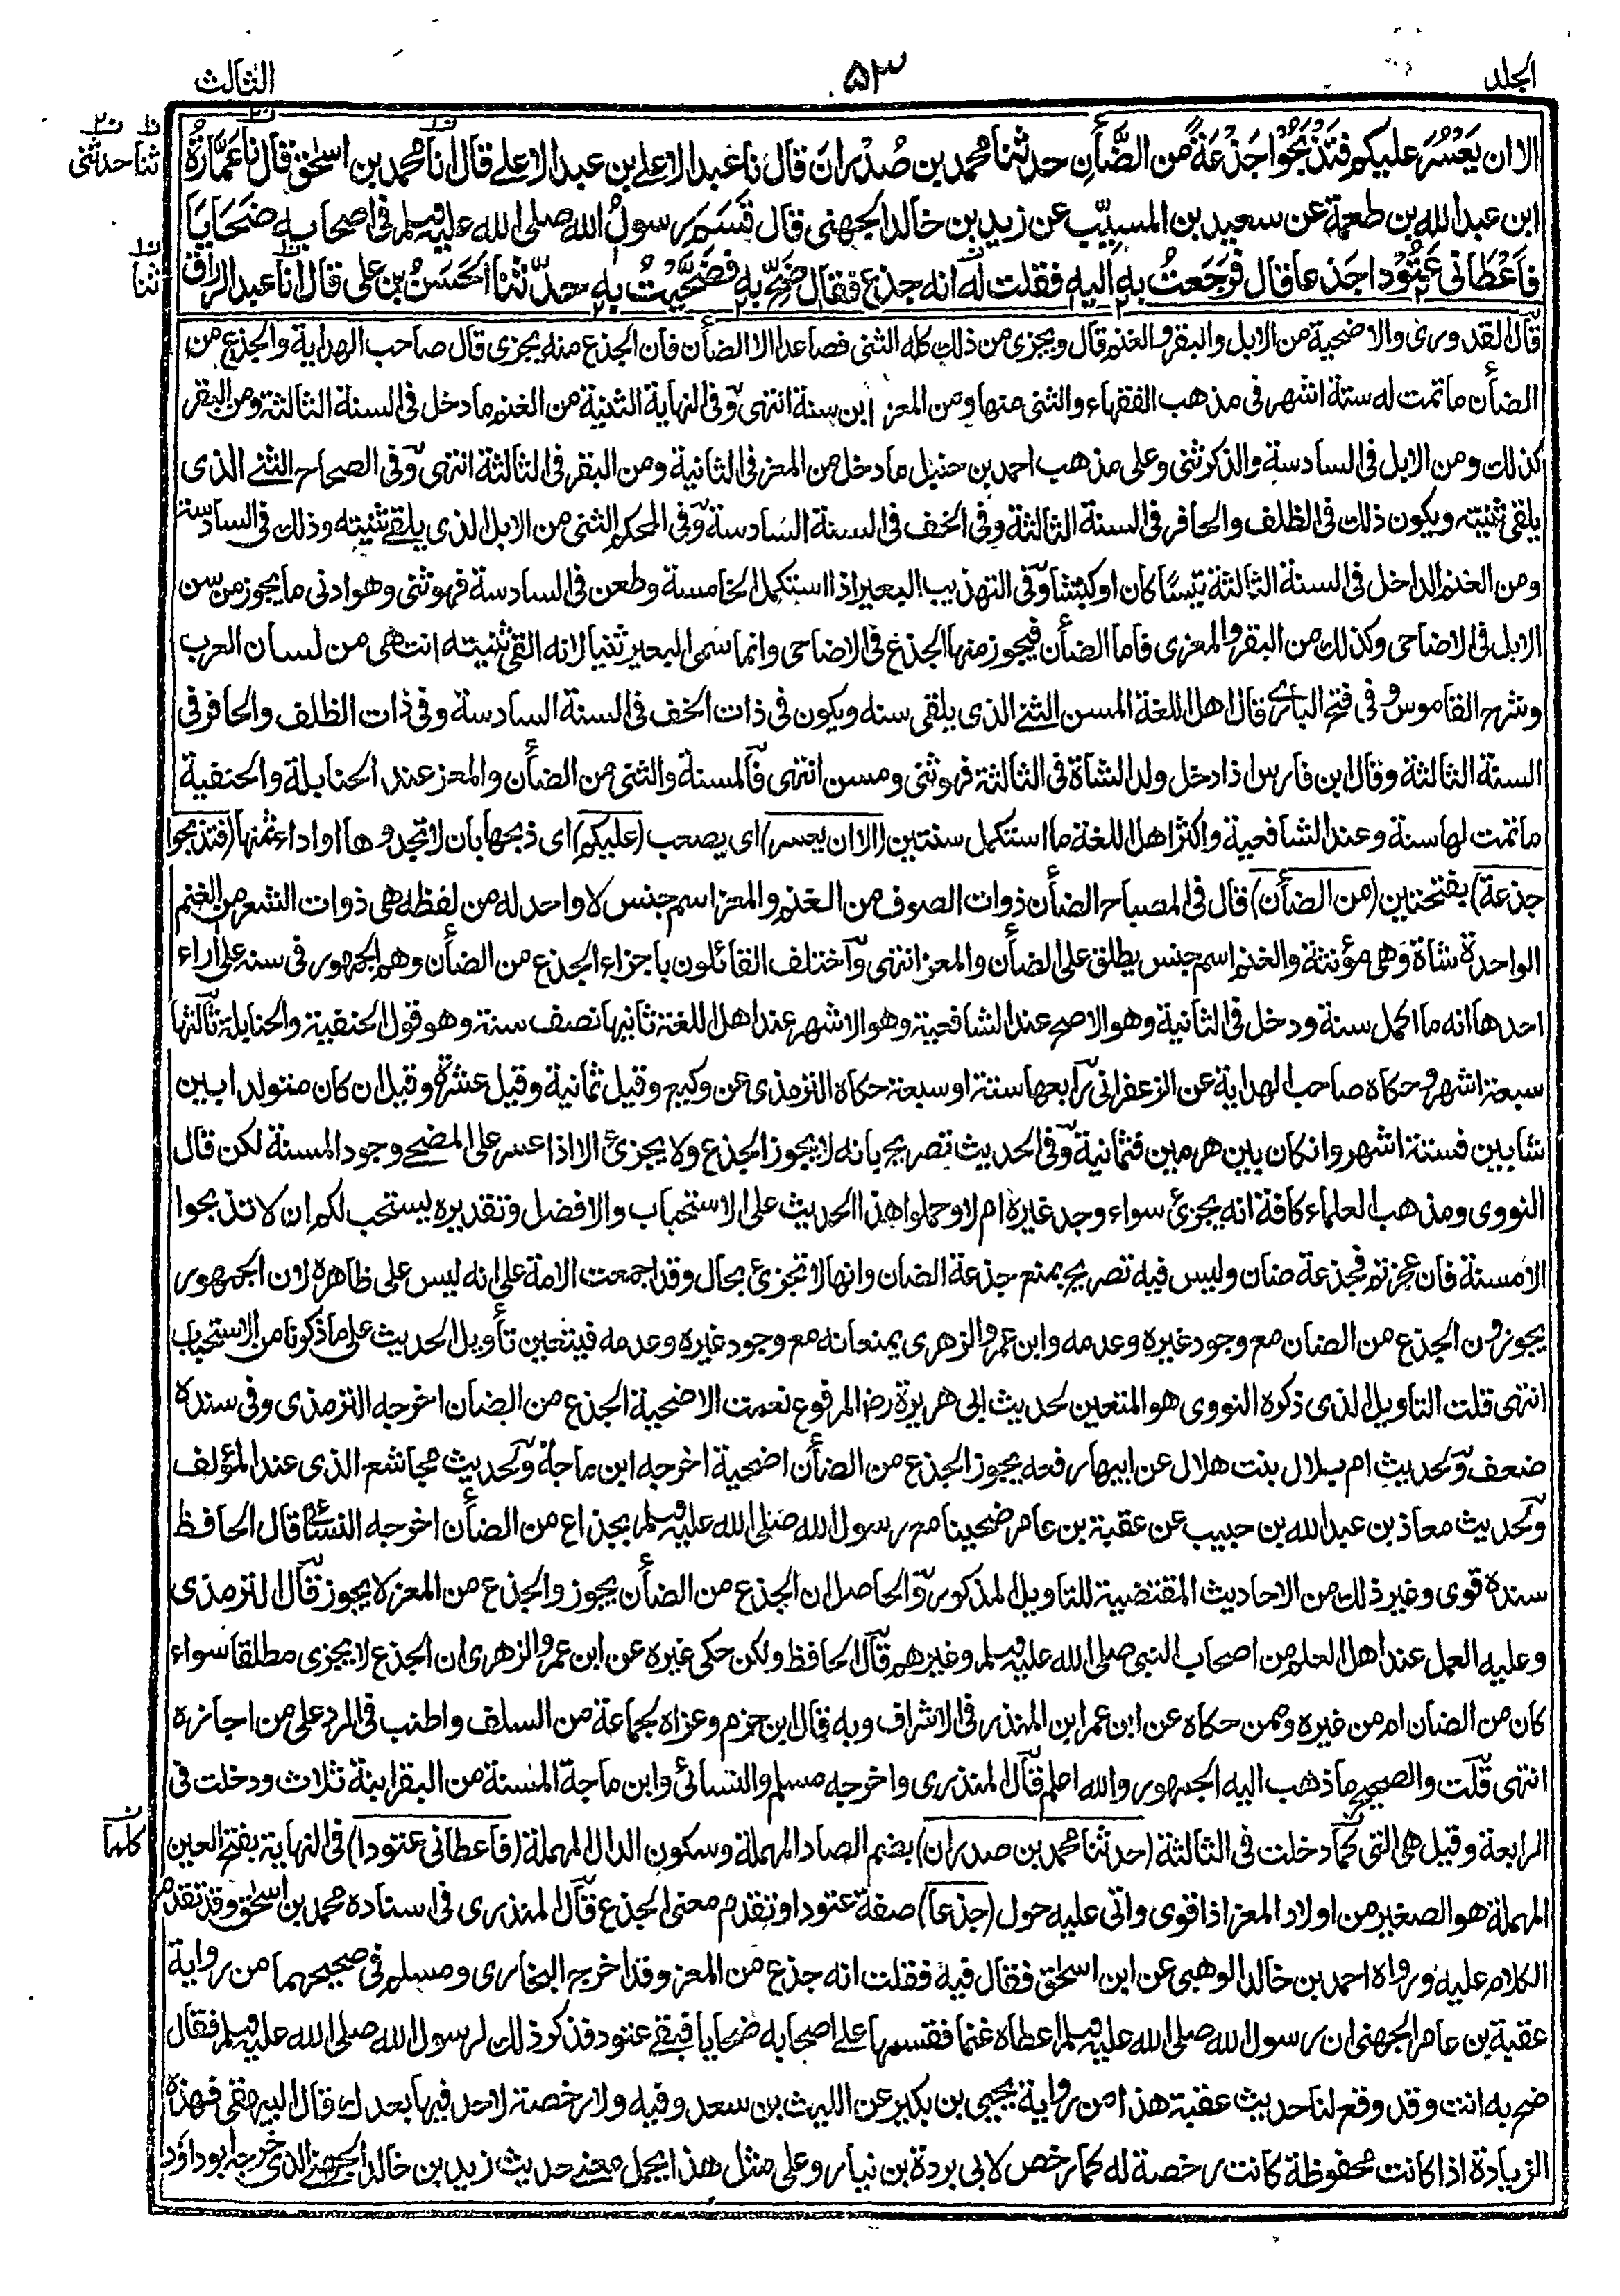 الجلد ٥٣ الثالث
الا ان يَعْسُرَ عليكم فَتَذْبَحُوا جَذَعَةً من الضَّأن حدثنا محمد بن صُدْرانَ قال نا عبد الاعلى بن عبد الاعلى قال انا محمد بن اسحٰق قال نا عُمَارَةُ
ثنا حدثنى
ابن عبد الله بن طعمة عن سعيد بن المسيّب عن زيد بن خالد الجهنى قال قَسَمَ رسولُ الله صلى الله عليه وسلم فى اصحابه ضَحَايَا
فَاَعْطَانى عَتُوْدا جَذعا قال فَرَجَعتُ به اليه فقلت له انه جذع فقال ضَحِّ به فضحَّيْتُ به حدّثنا الحَسَنُ بن على قال انا عبد الرزاق
ثنا
قال القدورى والاضحية من الابل والبقر والغنم قال ويجزى من ذلك كله الثنى فصاعدا الا الضأن فان الجذع منه يجزى قال صاحب الهداية والجذع من
الضأن ما تمت له ستة اشهر فى مذهب الفقهاء والثنى منها ومن المعز ابن سنة انتهى وفى النهاية الثنية من الغنم ما دخل فى السنة الثالثة ومن البقر
كذلك ومن الابل فى السادسة والذكر ثنى وعلى مذهب احمد بن حنبل ما دخل من المعز فى الثانية ومن البقر فى الثالثة انتهى وفى الصحاح الثنى الذى
يلقى ثنيته ويكون ذلك فى الظلف والحافر فى السنة الثالثة وفى الخف فى السنة السادسة وفى المحكم الثنى من الابل الذى يلقى ثنيته وذلك فى السادسة
ومن الغنم الداخل فى السنة الثالثة تيسًا كان او كبشا وفى التهذيب البعير اذا استكمل الخامسة وطعن فى السادسة فهو ثنى وهو ادنى ما يجوز من سن
الابل فى الاضاحى وكذلك من البقر والمعزى فاما الضأن فيجوز منها الجذع فى الاضاحى وانما سمى البعير ثنيا لانه القى ثنيته انتهى من لسان العرب
وشرح القاموس وفى فتح البارى قال اهل اللغة المسن الثنى الذى يلقى سنه ويكون فى ذات الخف فى السنة السادسة وفى ذات الظلف والحافر فى
السنة الثالثة وقال ابن فارس اذا دخل ولد الشاة فى الثالثة فهو ثنى ومسن انتهى فالمسنة والثنى من الضأن والمعز عند الحنابلة والحنفية
ما تمت لها سنة وعند الشافعية واكثر اهل اللغة ما استكمل سنتين (الا ان يعسر) اى يصعب (عليكم) اى ذبحها بان لا تجدوها او اداء ثمنها (فتذبحوا
جذعة) بفتحتين (من الضأن) قال فى المصباح الضأن ذوات الصوف من الغنم والمعز اسم جنس لا واحد له من لفظه هى ذوات الشعر من الغنم
الواحدة شاة وهى مؤنثة والغنم اسم جنس يطلق على الضأن والمعز انتهى واختلف القائلون باجزاء الجذع من الضأن وهم الجمهور فى سنه على آراء
احدها انه ما اكمل سنة ودخل فى الثانية وهو الاصح عند الشافعية وهو الاشهر عند اهل اللغة ثانيها نصف سنة وهو قول الحنفية والحنابلة ثالثها
سبعة اشهر وحكاه صاحب الهداية عن الزعفرانى رابعها ستة او سبعة حكاه الترمذى عن وكيع وقيل ثمانية وقيل عشرة وقيل ان كان متولدا بين
شابين فستة اشهر وان كان بين هرمين فثمانية وفى الحديث تصريح بانه لا يجوز الجذع ولا يجزئ الا اذا عسر على المضحى وجود المسنة لكن قال
النووى ومذهب العلماء كافة انه يجزئ سواء وجد غيره ام لا وحملوا هذا الحديث على الاستحباب والافضل وتقديره يستحب لكم ان لا تذبحوا
الا مسنة فان عجزتم فجذعة ضان وليس فيه تصريح بمنع جذعة الضان وانها لا تجزئ بحال وقد اجمعت الامة على انه ليس على ظاهره لان الجمهور
يجوزون الجذع من الضان مع وجود غيره وعدمه وابن عمر والزهرى يمنعانه مع وجود غيره وعدمه فيتعين تأويل الحديث على ما ذكرنا من الاستحباب
انتهى قلت التاويل الذى ذكره النووى هو المتعين لحديث ابى هريرة رض المرفوع نعمت الاضحية الجذع من الضان اخرجه الترمذى وفى سنده
ضعف ولحديث ام بلال بنت هلال عن ابيها رفعه يجوز الجذع من الضأن اضحية اخرجه ابن ماجة ولحديث مجاشع الذى عند المؤلف
ولحديث معاذ بن عبد الله بن حبيب عن عقبة بن عامر ضحينا مع رسول الله صلى الله عليه وسلم بجذاع من الضأن اخرجه النسائى قال الحافظ
سنده قوى وغير ذلك من الاحاديث المقتضية للتاويل المذكور والحاصل ان الجذع من الضأن يجوز والجذع من المعز لا يجوز قال الترمذى
وعليه العمل عند اهل العلم من اصحاب النبى صلى الله عليه وسلم وغيرهم قال الحافظ ولكن حكى غيره عن ابن عمر والزهرى ان الجذع لا يجزى مطلقا سواء
كان من الضان ام من غيره وممن حكاه عن ابن عمر ابن المنذر فى الاشراف وبه قال ابن حزم وعزاه لجماعة من السلف واطنب فى الرد على من اجازه
انتهى قلت والصحيح ما ذهب اليه الجمهور والله اعلم قال المنذرى واخرجه مسلم والنسائى وابن ماجة المسنة من البقر ابنة ثلاث ودخلت فى
الرابعة وقيل هى التى كما دخلت فى الثالثة (حدثنا محمد بن صدران) بضم الصاد المهملة وسكون الدال المهملة (فاعطانى عتودا) فى النهاية بفتح العين
كلها
المهملة هو الصغير من اولاد المعز اذا قوى واتى عليه حول (جذعا) صفة عتودا وتقدم معنى الجذع قال المنذرى فى اسناده محمد بن اسحٰق وقد تقدم
الكلام عليه ورواه احمد بن خالد الوهبى عن ابن اسحٰق فقال فيه فقلت انه جذع من المعز وقد اخرج البخارى ومسلم فى صحيحهما من رواية
عقبة بن عامر الجهنى ان رسول الله صلى الله عليه وسلم اعطاه غنما فقسمها على اصحابه ضحايا فبقى عتود فذكر ذلك لرسول الله صلى الله عليه وسلم فقال
ضح به انت وقد وقع لنا حديث عقبة هذا من رواية يحيى بن بكير عن الليث بن سعد وفيه ولا رخصة لاحد فيها بعدك قال البيهقى فهذه
الزيادة اذا كانت محفوظة كانت رخصة له كما رخص لابى بردة بن نيار وعلى مثل هذا يحمل معنى حديث زيد بن خالد الجهنى الذى خرجه ابو داؤد